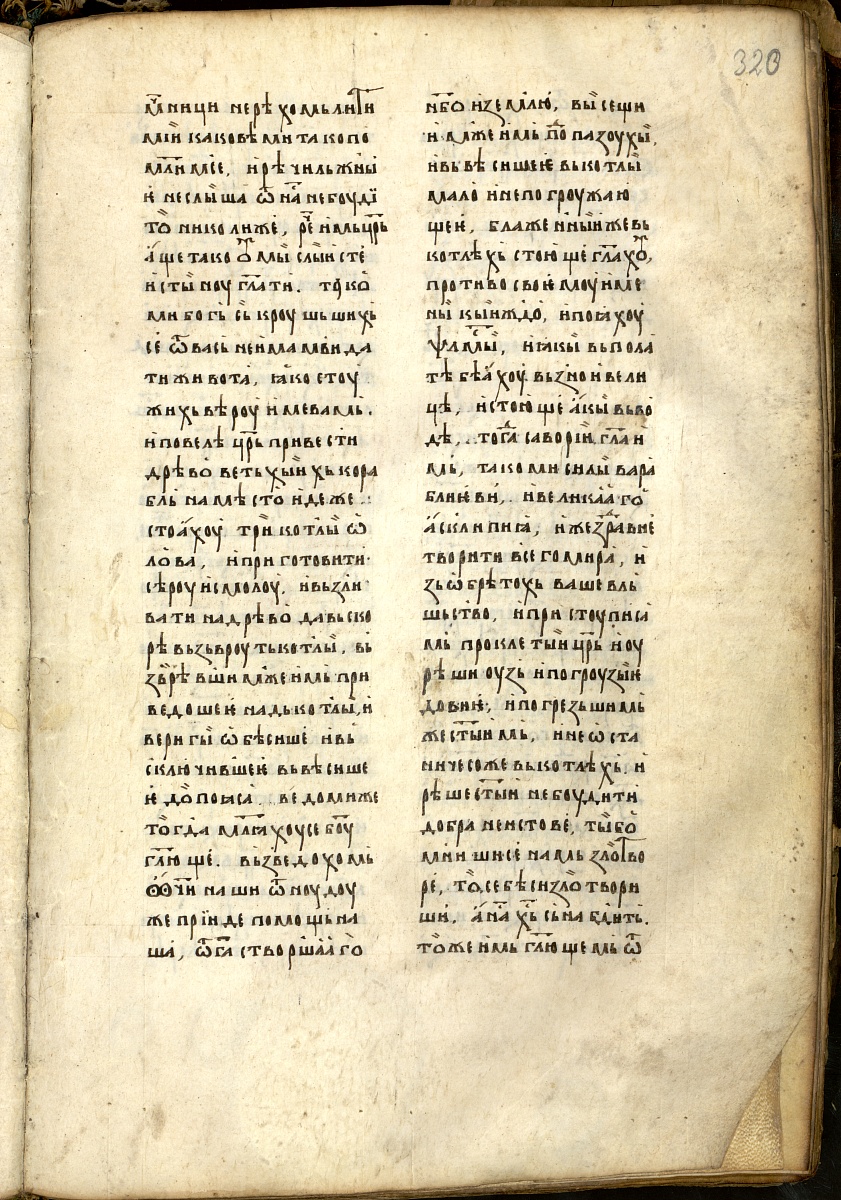 320
м҃чници не рѣхомь ли ти
мїи како вѣми тако по
мл҃имсе, и рѣчи лъжны
ѥ неслыша ѿ на҃ не боуді
то николиже, рѐ имь цр҃ь
аще тако ѿ мы слыисте
истыноу гл҃ати. тъко
ми богь съкроушьшихь
се ѿ вась не имамьи да
ти живота, ꙗко стоу
жихь вѣроуи мевамь.
и повелѣ цр҃ь привести
дрѣво ветьхыихь кора
бль на мѣсто идеже
стоахоу три котлы ѡ
лова, и приготовити
сѣроу и смолоу, и възли
вати на дрѣво да въско
рѣ възьвроуть котлы, вь
зврѣвшимже имь при
ведоше ѥ надь котлы, и
веригы ѡбѣсише и вь
сключивше ѥ въвѣсише
ѥ до поꙗса. ведомиже
тогда мл҃ꙗхоусе бо҃у
гл҃юще. възведохомь
ѻчи наши ѿноудоу
же прїиде помощь на
ша, ѿ га҃ створшааго
нб҃о и землю, высещи
имже имь по пазоухы,
и въвѣсише ѥ въ котлы
мало и не погроужаю
ще ѥ, блаженныиже вь
котлѣхь стоюще гл҃ахоу,
противо своѥмоу име
ны кыиждо, и поꙗхоу
ѱалмы, и ꙗкы вь пола
тѣ бѣахоу възно и вели
цѣ, и стоюще акы вь во
дѣ, тогда саворїи гл҃а и
мь, тако ми силы вара
блиѥви, и великааго
асклипиꙗ, иже здравиѥ
творити всего мира, и
зьѡбрѣтохь ваше вль
шьство, и пристоуписа
мь проклетыи цр҃ь и оу
рѣши оузы и погроузы ѥ
до выѥ, и погрезьшимь
же ст҃ыимь, и не ѡста
ничесоже вь котлѣхь. и
рѣше ст҃ыи не боуди ти
добра неистове, ты бо
мнишисе намь зло тво
ре, то себѣ си зло твори
ши. а на҃ хь҃ сьнабдить.
тоже имь гл҃ющемь ѿ